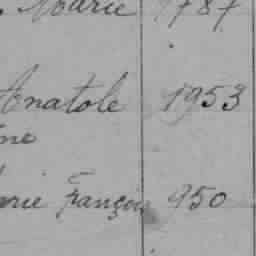 Marie 1787
Anatole 1953
ne
rie François 950